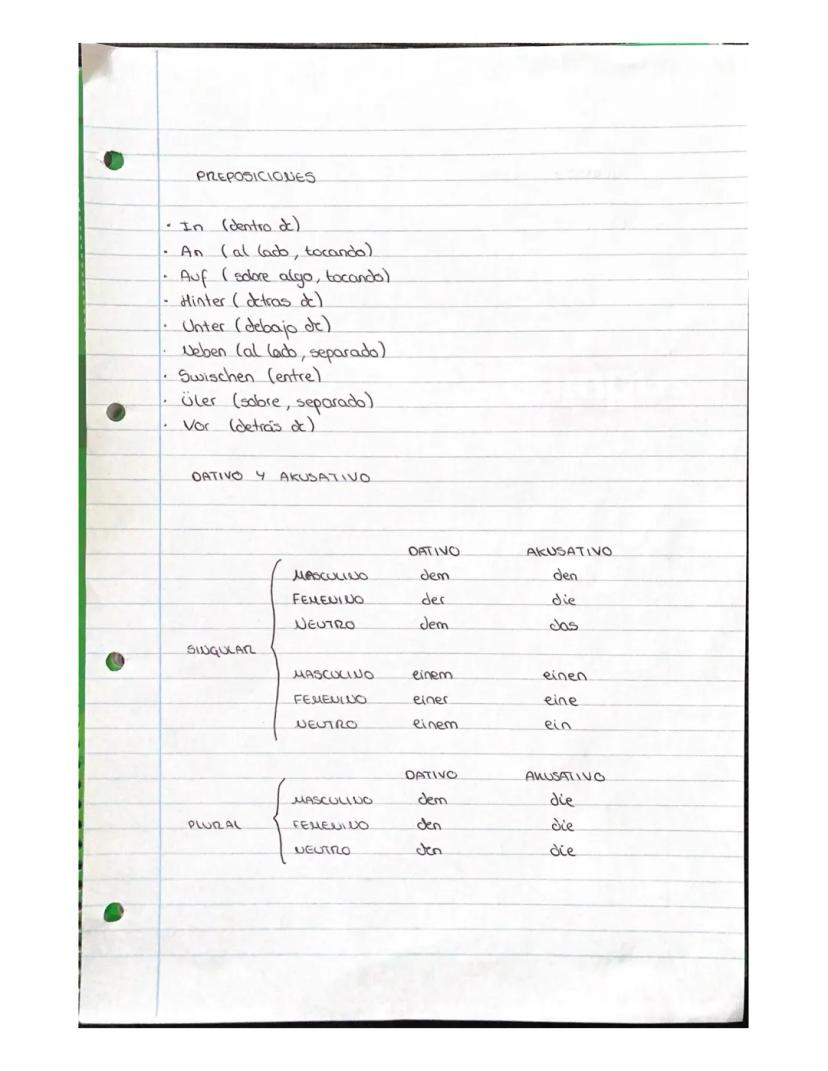 PREPOSICIONES
· In (dentro de)
· An (al lado, tocando)
· Auf (sobre algo, tocando)
· Hinter (detras de)
· Unter (debajo de)
· Neben (al lado, separado)
· Swischen (entre)
· Üler (sobre, separado)
· Vor (detrás de)
DATIVO Y AKUSATIVO
DATIVO AKUSATIVO
MASCULINO dem den
FEMENINO der die
NEUTRO dem das
SINGULAR
MASCULINO einem einen
FEMENINO einer eine
NEUTRO einem ein
DATIVO AKUSATIVO
MASCULINO dem die
PLURAL FEMENINO den die
NEUTRO den die